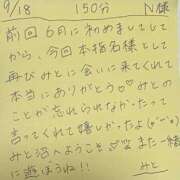 9/18 150分 N様
前回6月に初めましてして
から、今回本指名様として
再びみとに会いに来てくれて
本当にありがとう♡みとの
ことが忘れられなかったって
言ってくれて嬉しかったよ(o^^o)
みと沼へようこそ♡また一緒
に遊ぼうね!! みと